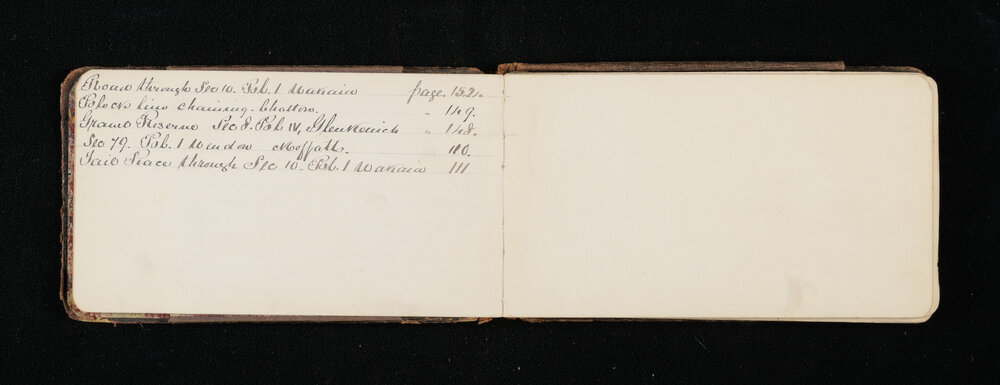 Road through Sec 10. Blk. 1 Waikaia page. 152.
Block line chaining. Chatton. " 149.
Gravel Reserve Sec 8. Blk IV, Glenkenich " 148.
Sec 79. Blk. 1 Wendon Moffatt. 110.
Tail Race through Sec 10. Blk. 1 Waikaia 111